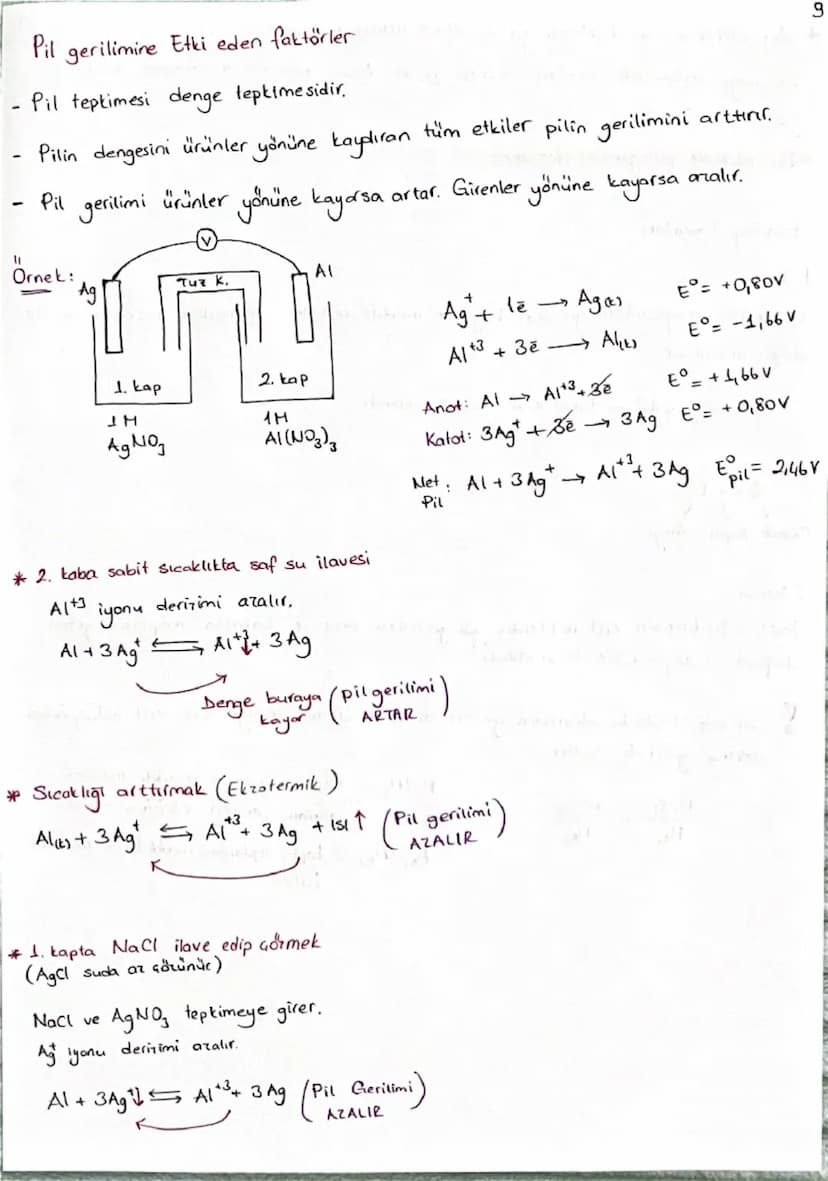 9
Pil gerilimine Etki eden faktörler
- Pil tepkimesi denge tepkimesidir.
- Pilin dengesini ürünler yönüne kaydıran tüm etkiler pilin gerilimini arttırır.
- Pil gerilimi ürünler yönüne kayarsa artar. Girenler yönüne kayarsa azalır.
Örnek:
V
Ag
Tuz K.
Al
1. kap
2. kap
1M
AgNO₃
1M
Al(NO₃)₃
Ag⁺ + 1ē → Ag(k) E⁰= +0,80V
Al⁺³ + 3ē → Al(k) E⁰= -1,66V
Anot: Al → Al⁺³ + 3ē E⁰= +1,66V
Katot: 3Ag⁺ + 3ē → 3Ag E⁰= +0,80V
Net: Al + 3Ag⁺ → Al⁺³ + 3Ag E⁰pil= 2,46V
Pil
* 2. kaba sabit sıcaklıkta saf su ilavesi
Al⁺³ iyonu derişimi azalır.
Al + 3Ag⁺ ⇌ Al⁺³↓ + 3Ag
Denge buraya kayar (pil gerilimi ARTAR)
* Sıcaklığı arttırmak (Ekzotermik)
Al(k) + 3Ag⁺ ⇌ Al⁺³ + 3Ag + ısı↑ (Pil gerilimi AZALIR)
* 1. kapta NaCl ilave edip çözmek
(AgCl suda az çözünür)
NaCl ve AgNO₃ tepkimeye girer.
Ag⁺ iyonu derişimi azalır.
Al + 3Ag⁺↓ ⇌ Al⁺³ + 3Ag (Pil Gerilimi AZALIR)